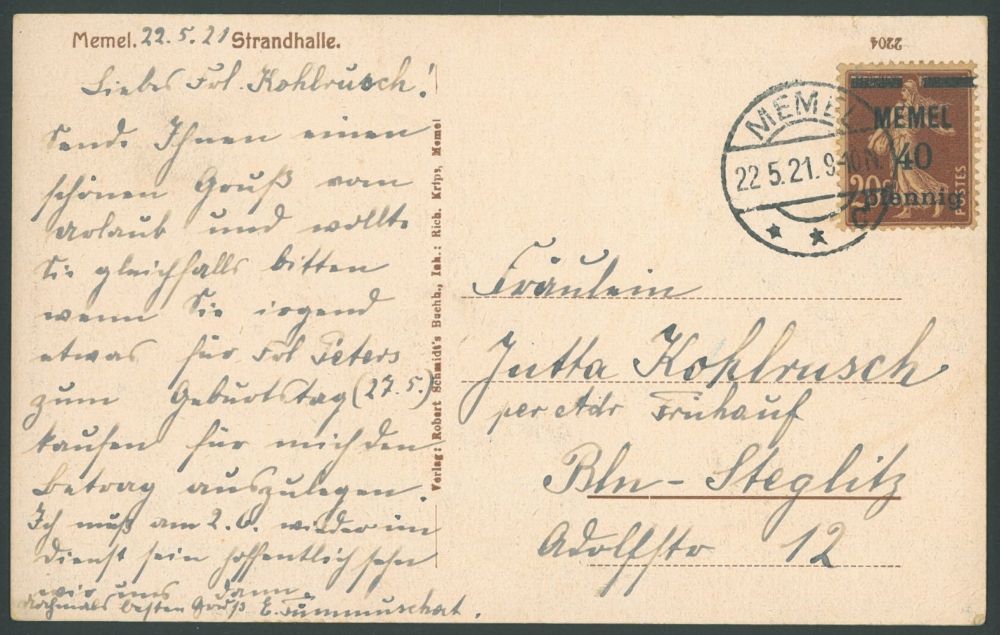 Memel. 22.5.21 Strandhalle.
Liebes Frl. Kohlrusch!
Sende Ihnen einen
schönen Gruß vom
Urlaub und wollte
Sie gleichfalls bitten
wenn Sie irgend
etwas für Frl Peters
zum Geburtstag (27.5.)
kaufen für mich den
Betrag auszulegen.
Ich muß am 2.6. wieder im
Dienst sein hoffentlich sehn
wir uns dann.
Nochmals besten Gruß E.
Verlag: Robert Schmidt's Buchh., Inh.: Rich. Krips, Memel
2204
MEMEL
22.5.21.9-10N.
* * C
MEMEL
40
pfennig
20c
POSTES
Fräulein
Jutta Kohlrusch
per Adr Frühauf
Bln - Steglitz
Adolfstr 12